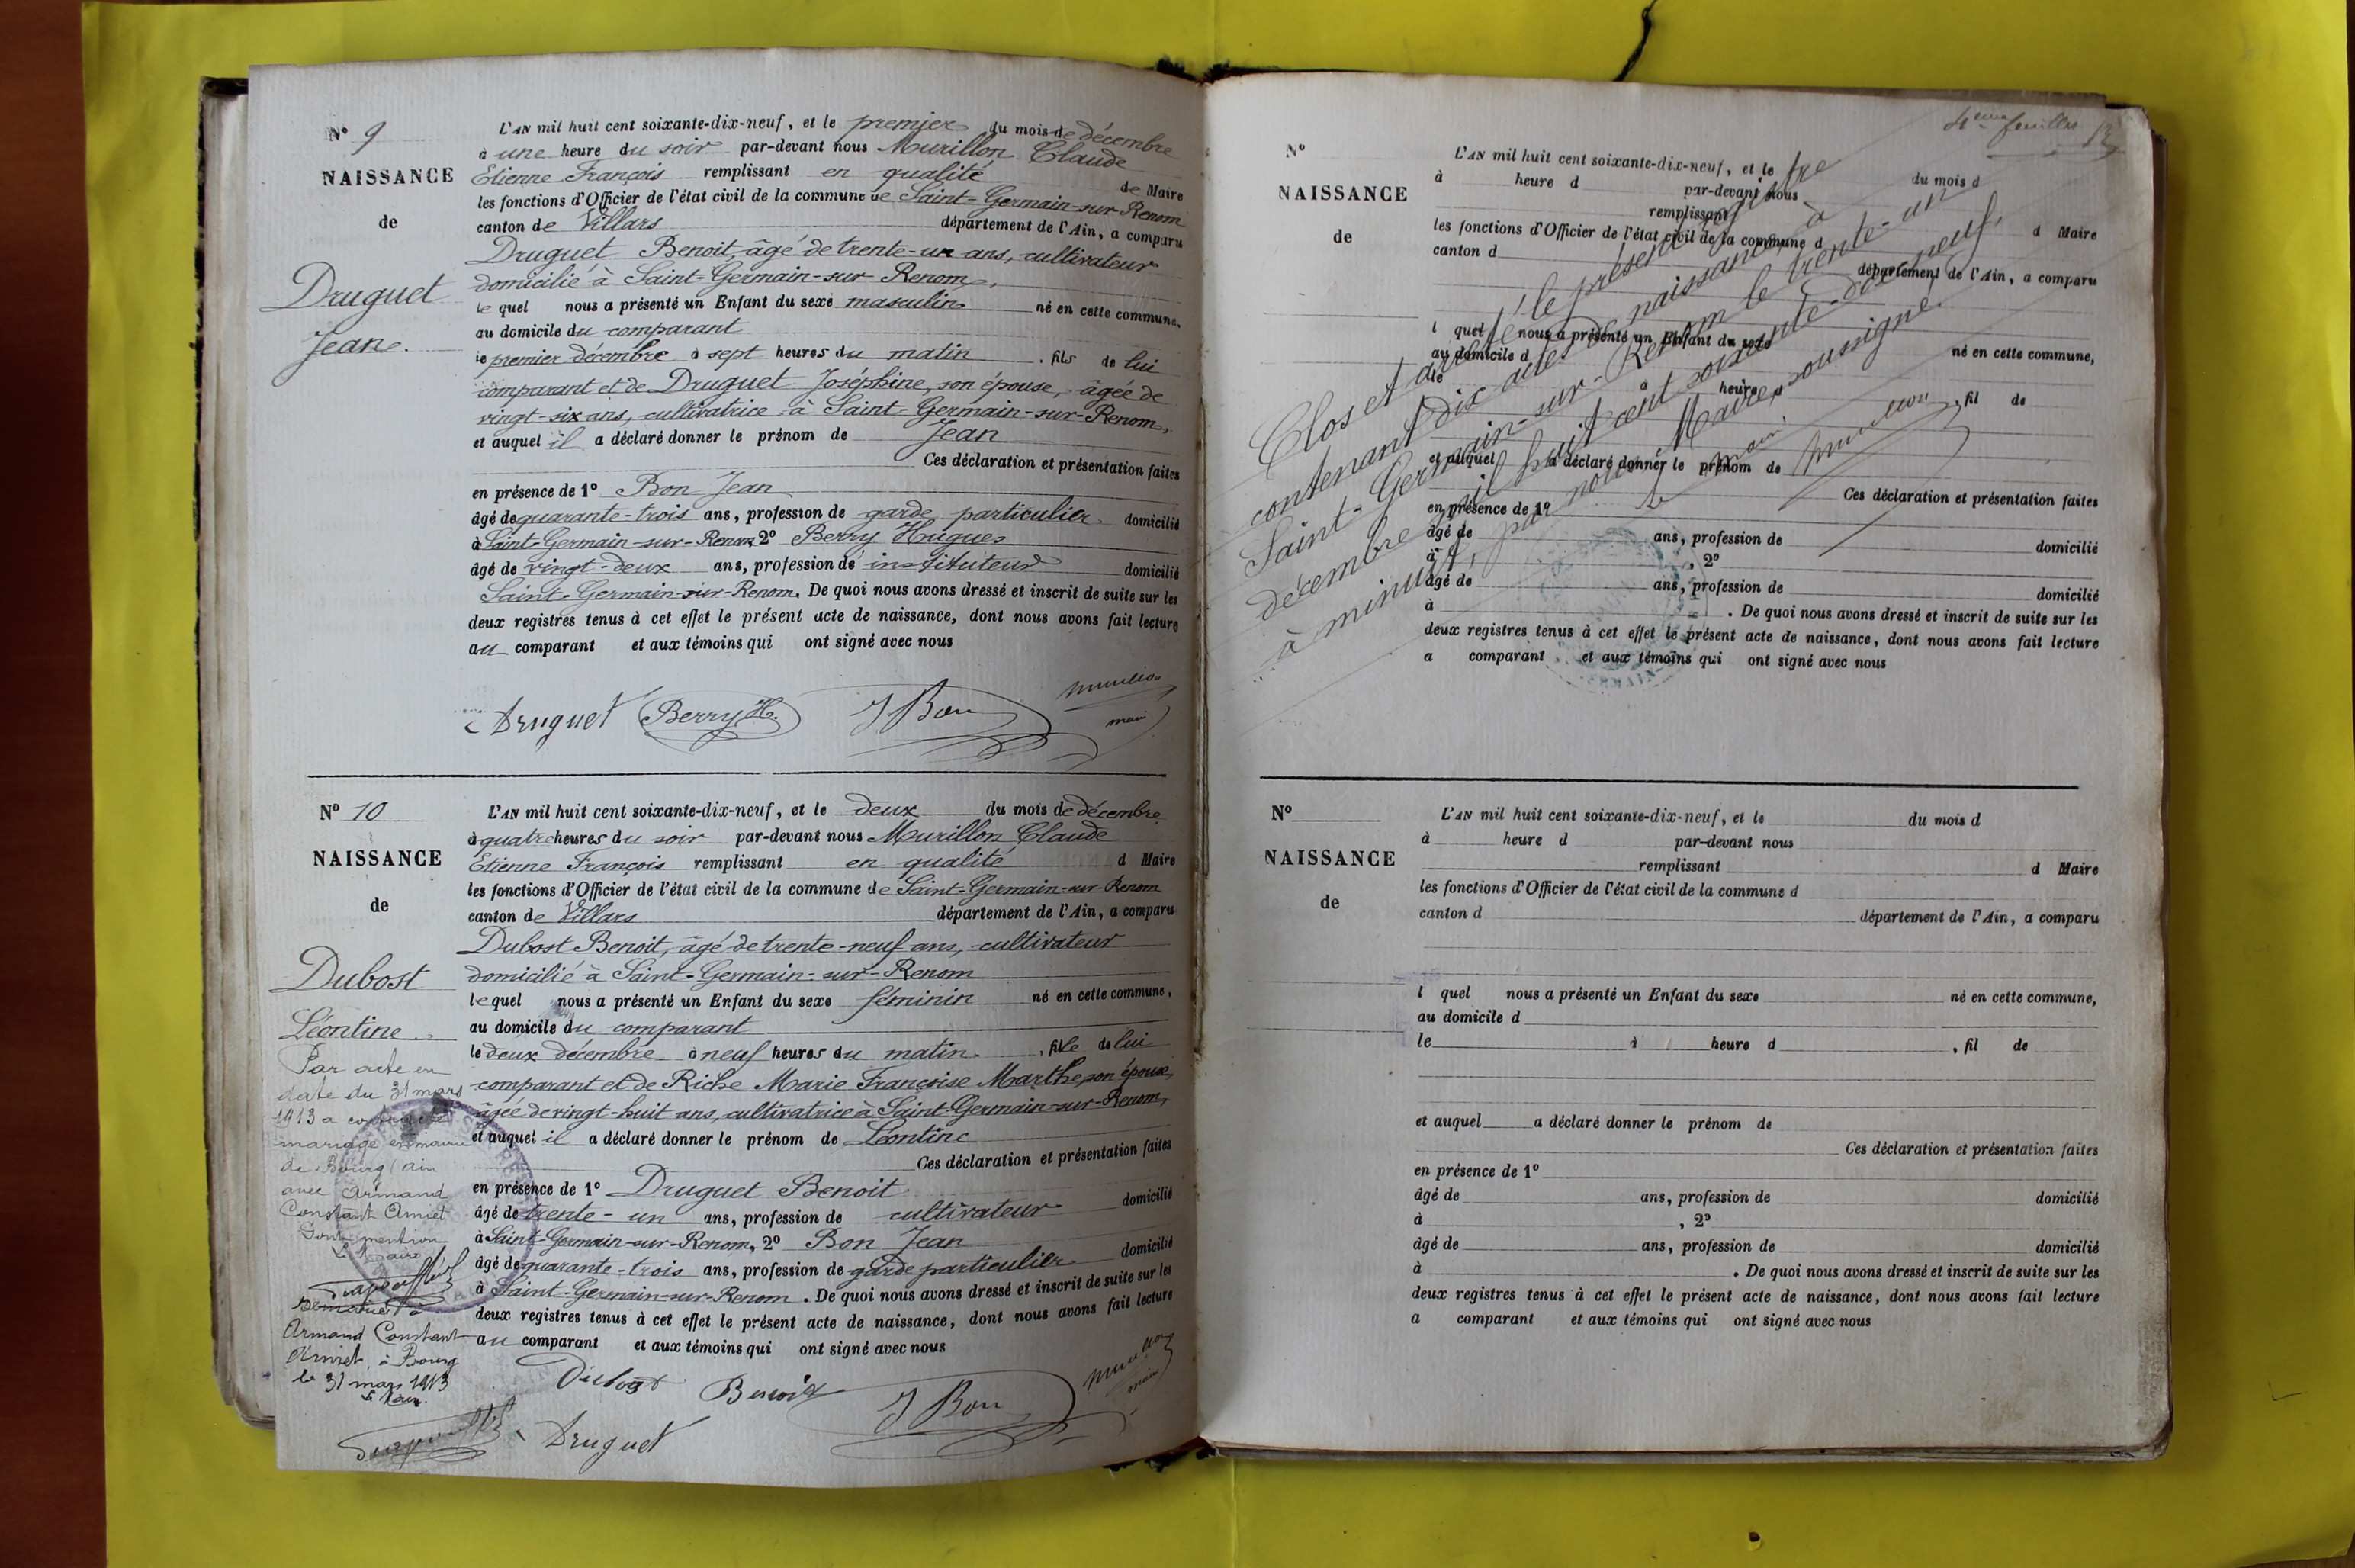 N° 9
NAISSANCE
de
Druguet
Jean.
L'AN mil huit cent soixante-dix-neuf, et le premier du mois de décembre
à une heure du soir par-devant nous Murillon Claude
Etienne François remplissant en qualité de Maire
les fonctions d'Officier de l'état civil de la commune de Saint-Germain-sur-Renom
canton de Villars département de l'Ain, a comparu
Druguet Benoit, âgé de trente-un ans, cultivateur
domicilié à Saint-Germain-sur Renom,
lequel nous a présenté un Enfant du sexe masculin né en cette commune,
au domicile du comparant
le premier décembre à sept heures du matin, fils de lui
comparant et de Druguet Joséphine, son épouse, âgée de
vingt-six ans, cultivatrice à Saint-Germain-sur-Renom,
et auquel il a déclaré donner le prénom de Jean
Ces déclaration et présentation faites
en présence de 1° Bon Jean
âgé de quarante-trois ans, profession de garde particulier domicilié
à Saint-Germain-sur-Renom 2° Berry Hugues
âgé de vingt-deux ans, profession de instituteur domicilié
Saint-Germain-sur-Renom. De quoi nous avons dressé et inscrit de suite sur les
deux registres tenus à cet effet le présent acte de naissance, dont nous avons fait lecture
au comparant et aux témoins qui ont signé avec nous
Druguet Berry H. J Bon Murillon
maire
N° 10
NAISSANCE
de
Dubost
Léontine
Par acte en
date du 31 mars
1913 a contracté
mariage en mairie
de Bourg (Ain
avec Armand
Constant Amiet
Dont mention
Le Maire
Armand Constant
Amiet, à Bourg
le 31 mars 1913
Le Maire.
L'AN mil huit cent soixante-dix-neuf, et le deux du mois de décembre
à quatre heures du soir par-devant nous Murillon Claude
Etienne François remplissant en qualité d Maire
les fonctions d'Officier de l'état civil de la commune de Saint-Germain-sur-Renom
canton de Villars département de l'Ain, a comparu
Dubost Benoit, âgé de trente-neuf ans, cultivateur
domicilié à Saint-Germain-sur-Renom
lequel nous a présenté un Enfant du sexe féminin né en cette commune,
au domicile du comparant
le deux décembre à neuf heures du matin, fille de lui
comparant et de Riche Marie Françoise Marthe, son épouse,
âgée de vingt-huit ans, cultivatrice à Saint-Germain-sur-Renom,
et auquel il a déclaré donner le prénom de Léontine
Ces déclaration et présentation faites
en présence de 1° Druguet Benoit
âgé de trente-un ans, profession de cultivateur domicilié
à Saint-Germain-sur-Renom, 2° Bon Jean
âgé de quarante-trois ans, profession de garde particulier domicilié
à Saint-Germain-sur-Renom. De quoi nous avons dressé et inscrit de suite sur les
deux registres tenus à cet effet le présent acte de naissance, dont nous avons fait lecture
au comparant et aux témoins qui ont signé avec nous
Dubost Benoit J Bon Murillon
maire
Druguet
N°
NAISSANCE
de
L'AN mil huit cent soixante-dix-neuf, et le du mois d
à heure d par-devant nous
remplissant d Maire
les fonctions d'Officier de l'état civil de la commune d
canton d département de l'Ain, a comparu
l quel nous a présenté un Enfant du sexe né en cette commune,
au domicile d
le à heure d, fil de
et auquel a déclaré donner le prénom de
Ces déclaration et présentation faites
en présence de 1°
âgé de ans, profession de domicilié
à , 2°
âgé de ans, profession de domicilié
à . De quoi nous avons dressé et inscrit de suite sur les
deux registres tenus à cet effet le présent acte de naissance, dont nous avons fait lecture
a comparant et aux témoins qui ont signé avec nous
Clos et arrêté le présent registre
contenant dix actes de naissance, à
Saint-Germain-sur-Renom le trente-un
décembre mil huit cent soixante-dix-neuf,
à minuit, par nous Maire, soussigné.
Le maire
Murillon
N°
NAISSANCE
de
L'AN mil huit cent soixante-dix-neuf, et le du mois d
à heure d par-devant nous
remplissant d Maire
les fonctions d'Officier de l'état civil de la commune d
canton d département de l'Ain, a comparu
l quel nous a présenté un Enfant du sexe né en cette commune,
au domicile d
le à heure d , fil de
et auquel a déclaré donner le prénom de
Ces déclaration et présentation faites
en présence de 1°
âgé de ans, profession de domicilié
à , 2°
âgé de ans, profession de domicilié
à . De quoi nous avons dressé et inscrit de suite sur les
deux registres tenus à cet effet le présent acte de naissance, dont nous avons fait lecture
a comparant et aux témoins qui ont signé avec nous